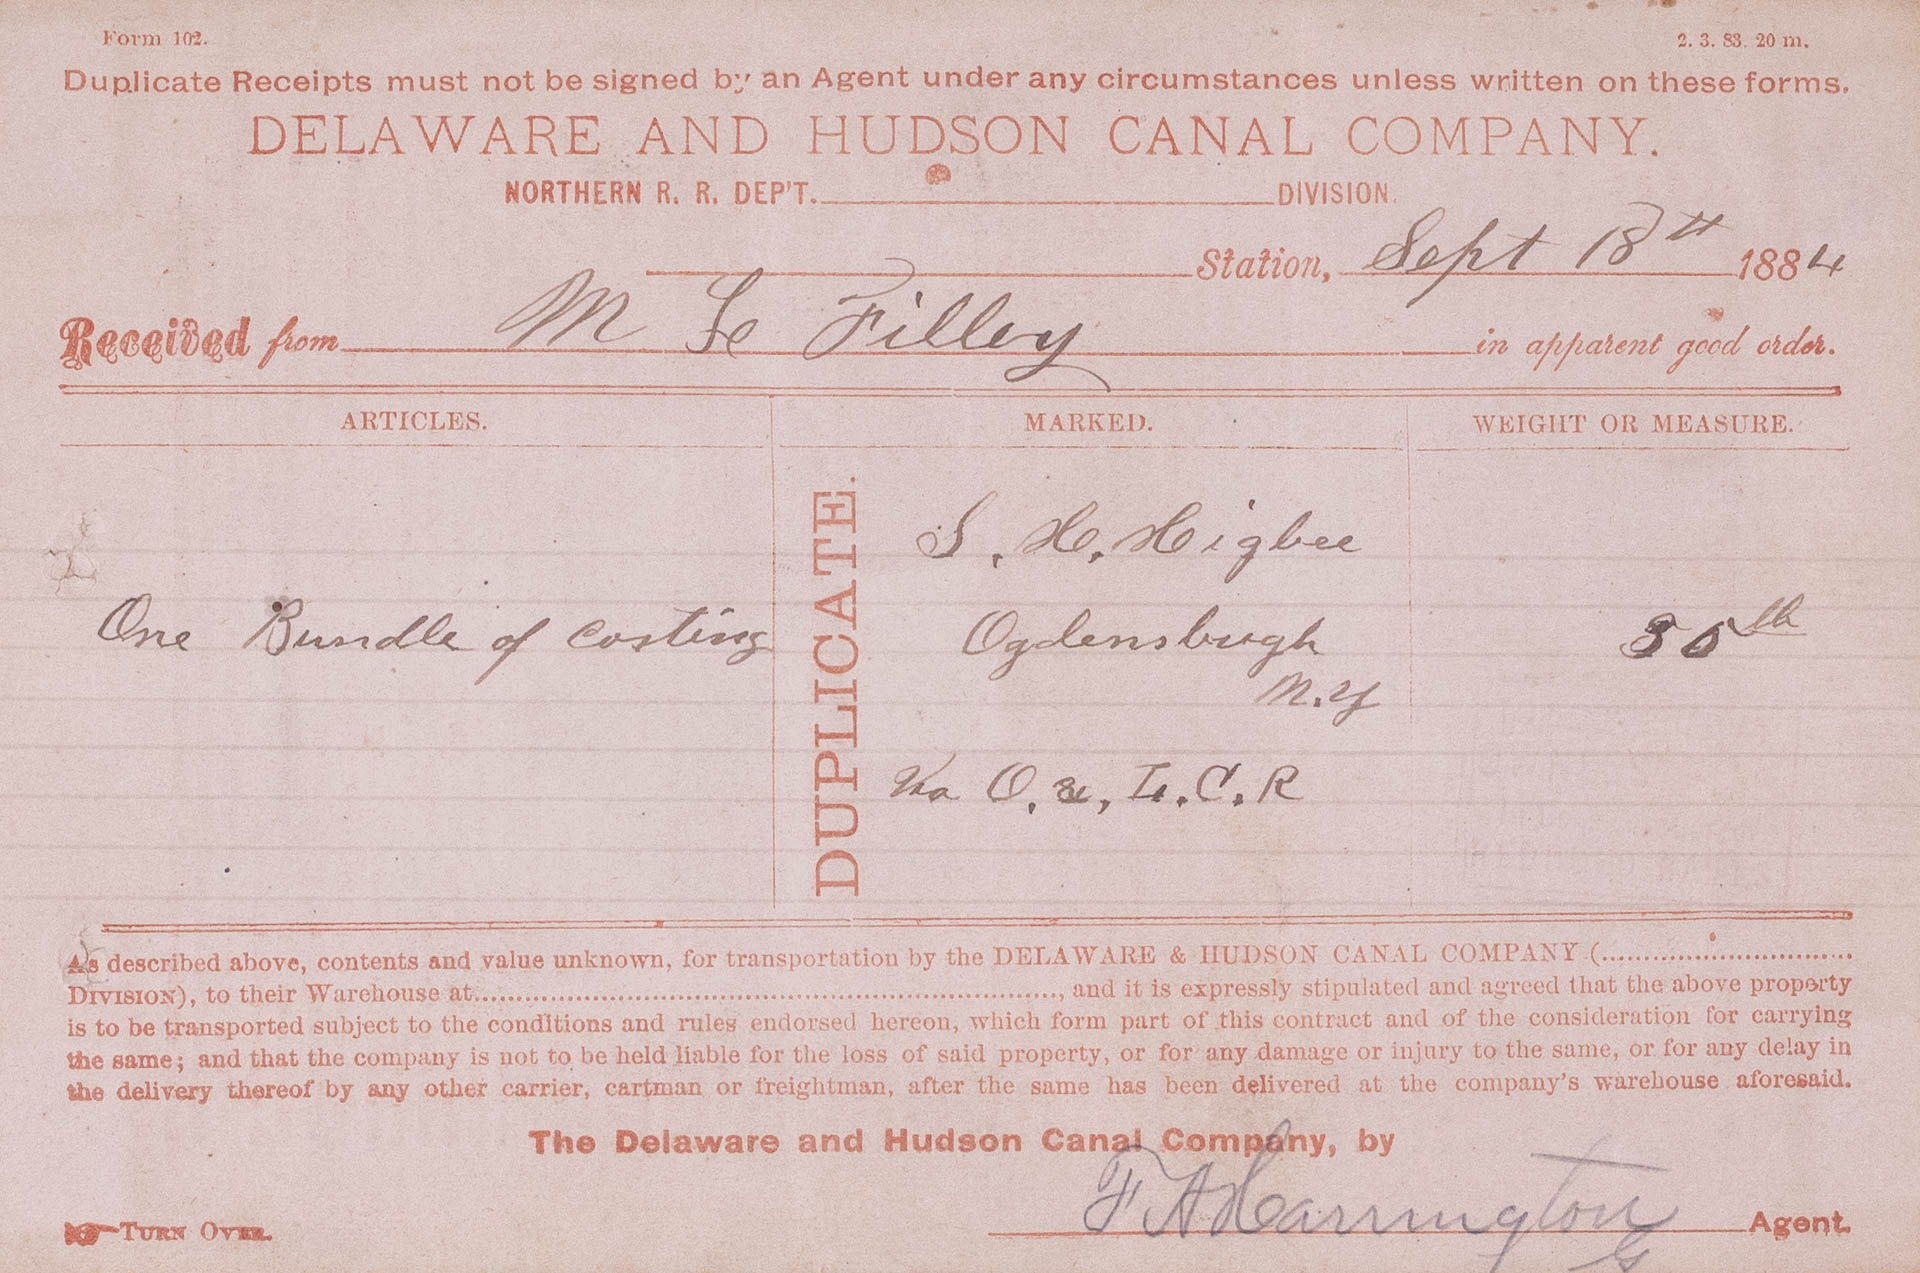 Form 102.
2. 3. 83. 20 m.
Duplicate Receipts must not be signed by an Agent under any circumstances unless written on these forms.
DELAWARE AND HUDSON CANAL COMPANY.
NORTHERN R. R. DEP'T. DIVISION.
Station, Sept 18th 1884
Received from M Filley in apparent good order.
ARTICLES. MARKED. WEIGHT OR MEASURE.
DUPLICATE.
S. H. Higbee
One Bundle of Casting Ogdensbugh lb
N.Y
Via O. &, L. C. R
As described above, contents and value unknown, for transportation by the DELAWARE & HUDSON CANAL COMPANY (
DIVISION), to their Warehouse at, and it is expressly stipulated and agreed that the above property
is to be transported subject to the conditions and rules endorsed hereon, which form part of this contract and of the consideration for carrying
the same; and that the company is not to be held liable for the loss of said property, or for any damage or injury to the same, or for any delay in
the delivery thereof by any other carrier, cartman or freightman, after the same has been delivered at the company's warehouse aforesaid.
The Delaware and Hudson Canal Company, by
F A Harrington
TURN OVER. Agent.